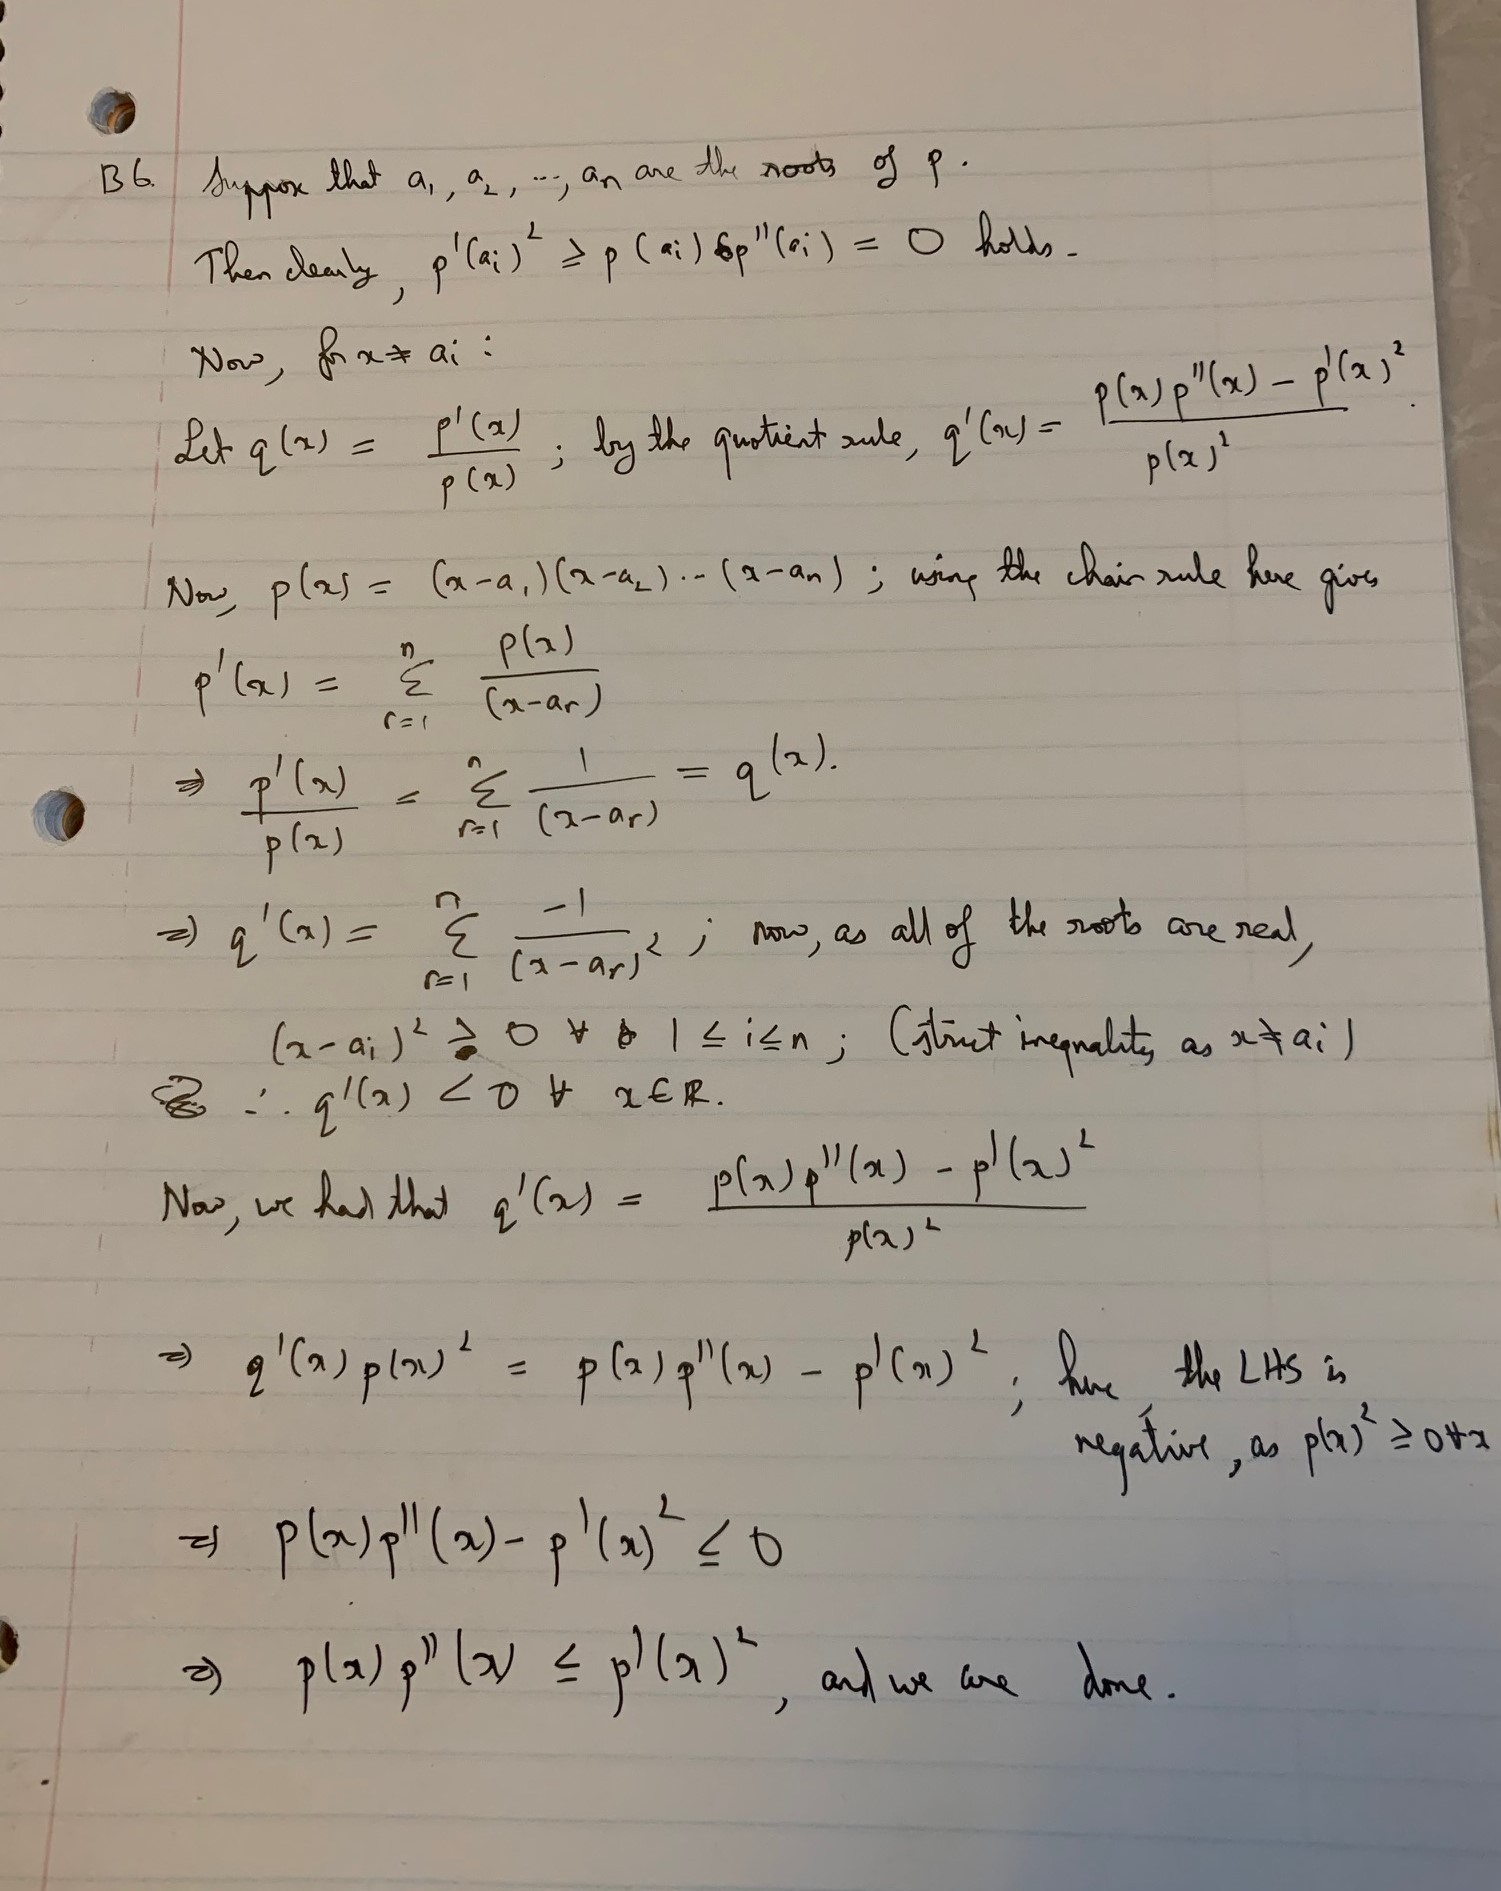 B6. Suppose that a₁, a₂, ..., aₙ are the roots of p.
Then clearly, p'(aᵢ)² ≥ p(aᵢ) p''(aᵢ) = 0 holds.
Now, for x ≠ aᵢ :
Let q(x) = p'(x)/p(x) ; by the quotient rule, q'(x) = (p(x)p''(x) - p'(x)²)/p(x)² .
Now, p(x) = (x-a₁)(x-a₂)...(x-aₙ) ; using the chain rule here gives
p'(x) = Σ_{r=1}^{n} p(x)/(x-aᵣ)
⇒ p'(x)/p(x) = Σ_{r=1}^{n} 1/(x-aᵣ) = q(x).
⇒ q'(x) = Σ_{r=1}^{n} -1/(x-aᵣ)² ; now, as all of the roots are real,
(x-aᵢ)² > 0 ∀ 1 ≤ i ≤ n ; (strict inequality as x ≠ aᵢ)
∴ q'(x) < 0 ∀ x ∈ ℝ.
Now, we had that q'(x) = (p(x)p''(x) - p'(x)²)/p(x)²
⇒ q'(x)p(x)² = p(x)p''(x) - p'(x)² ; here, the LHS is
negative, as p(x)² ≥ 0 ∀x
⇒ p(x)p''(x) - p'(x)² ≤ 0
⇒ p(x)p''(x) ≤ p'(x)², and we are done.